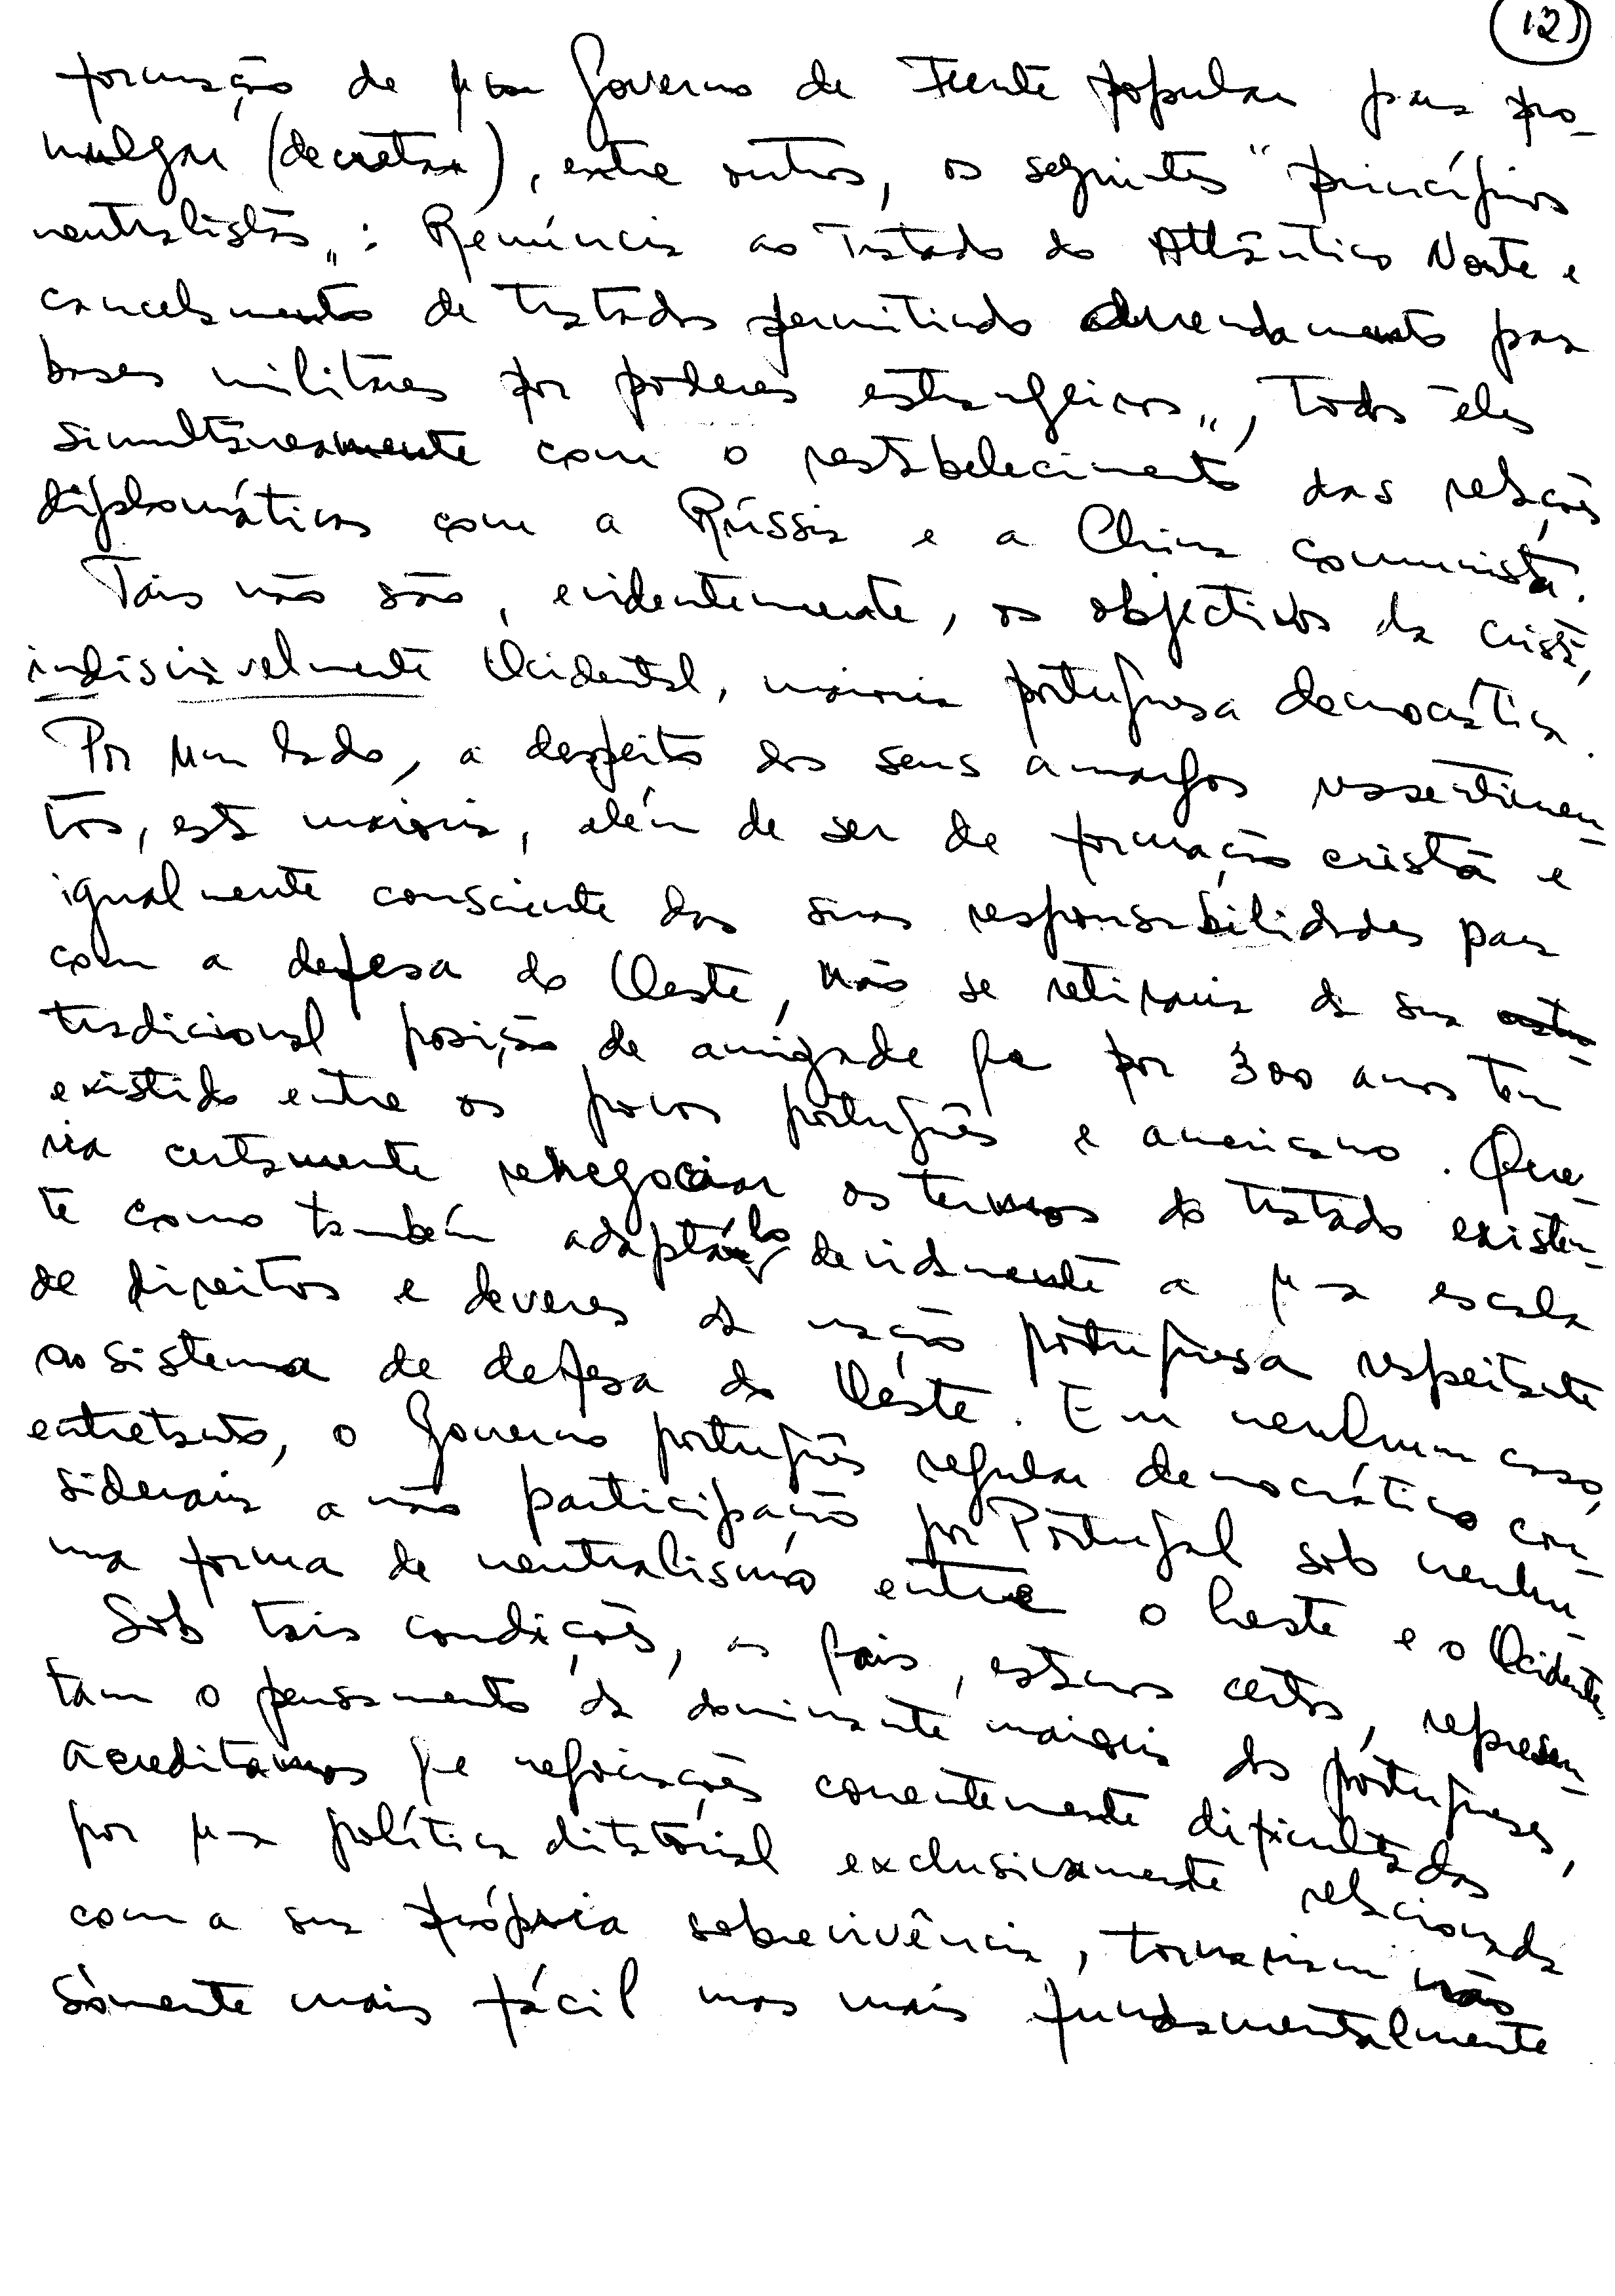 12)
formação de um Governo de Frente popular para pro-
mulgar (decretar), entre outros, os seguintes "princípios
neutralistas": Renúncia ao Tratado do Atlântico Norte e
cancelamento de tratados permitindo arrendamento para
bases militares por poderes estrangeiros", todos êles
simultâneamente com o restabelecimento das relações
diplomáticas com a Rússia e a China comunista.
Tais não são, evidentemente, os objectivos da cristã,
indiscutivelmente Ocidental, maioria portuguesa democrática.
Por um lado, a despeito dos seus amargos ressentimen-
tos, esta maioria, além de ser de formação cristã e
igualmente consciente das suas responsabilidades para
com a defesa do Oeste, não se retiraria da sua
tradicional posição de amizade que por 300 anos tem
existido entre os povos português e americano. Que-
ria certamente renegociar os termos do tratado existen-
te como também adaptá-lo devidamente a uma escala
de direitos e deveres da nação portuguesa respeitante
ao sistema de defesa do Oéste. Em nenhum caso,
entretanto, o Governo português regular democrático con-
sideraria a não participação por Portugal sob nenhu-
ma forma de neutralismo entre o Leste e o Ocidente.
Sob tais condições, as quais, estamos certos, represen-
tam o pensamento da dominante maioria dos portugueses,
acreditamos que negociações correntemente dificultadas
por uma política ditatorial exclusivamente relacionada
com a sua própria sobrevivência, tornariam não
sòmente mais fácil mas mais fundamentalmente